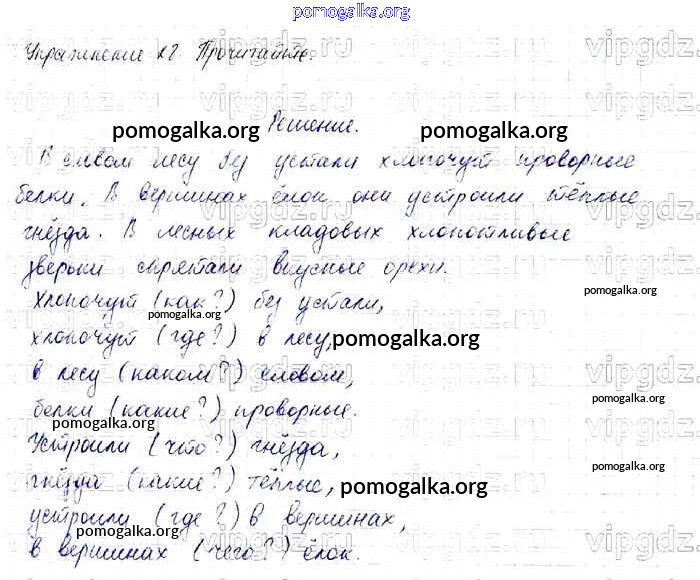 pomogalka.org
Упражнение 28. Прочитайте.
Решение.
pomogalka.org pomogalka.org
В еловом лесу без устали хлопочут проворные
белки. В вершинах ёлок они устроили тёплые
гнёзда. В лесных кладовых хлопотливые
зверьки спрятали вкусные орехи.
Хлопочут (как?) без устали,
pomogalka.org pomogalka.org
хлопочут (где?) в лесу,
pomogalka.org
в лесу (каком?) еловом,
белки (какие?) проворные.
pomogalka.org
Устроили (что?) гнёзда,
pomogalka.org
гнёзда (какие?) тёплые,
pomogalka.org
устроили (где?) в вершинах,
pomogalka.org
в вершинах (чего?) ёлок.
pomogalka.org
vipgdz.ru